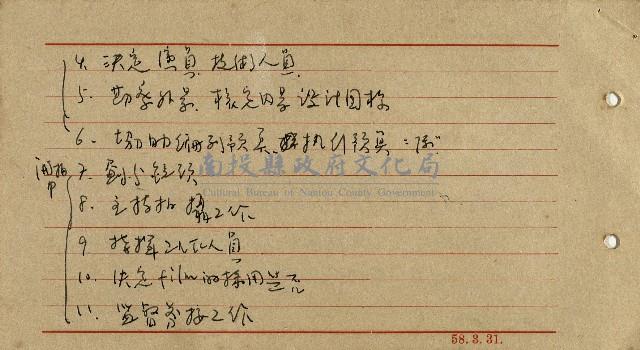 4. 決定演員、技術人員
5. 勘察外景、核定內景設計圖樣
6. 協助編列預算、執行預算
開拍中
7. 劃分鏡頭
南投縣政府文化局
Cultural Bureau of Nantou County Government
8. 主持拍攝工作
9 指揮工作人員
10. 決定film的採用
11. 监督剪接工作
58.3.31.